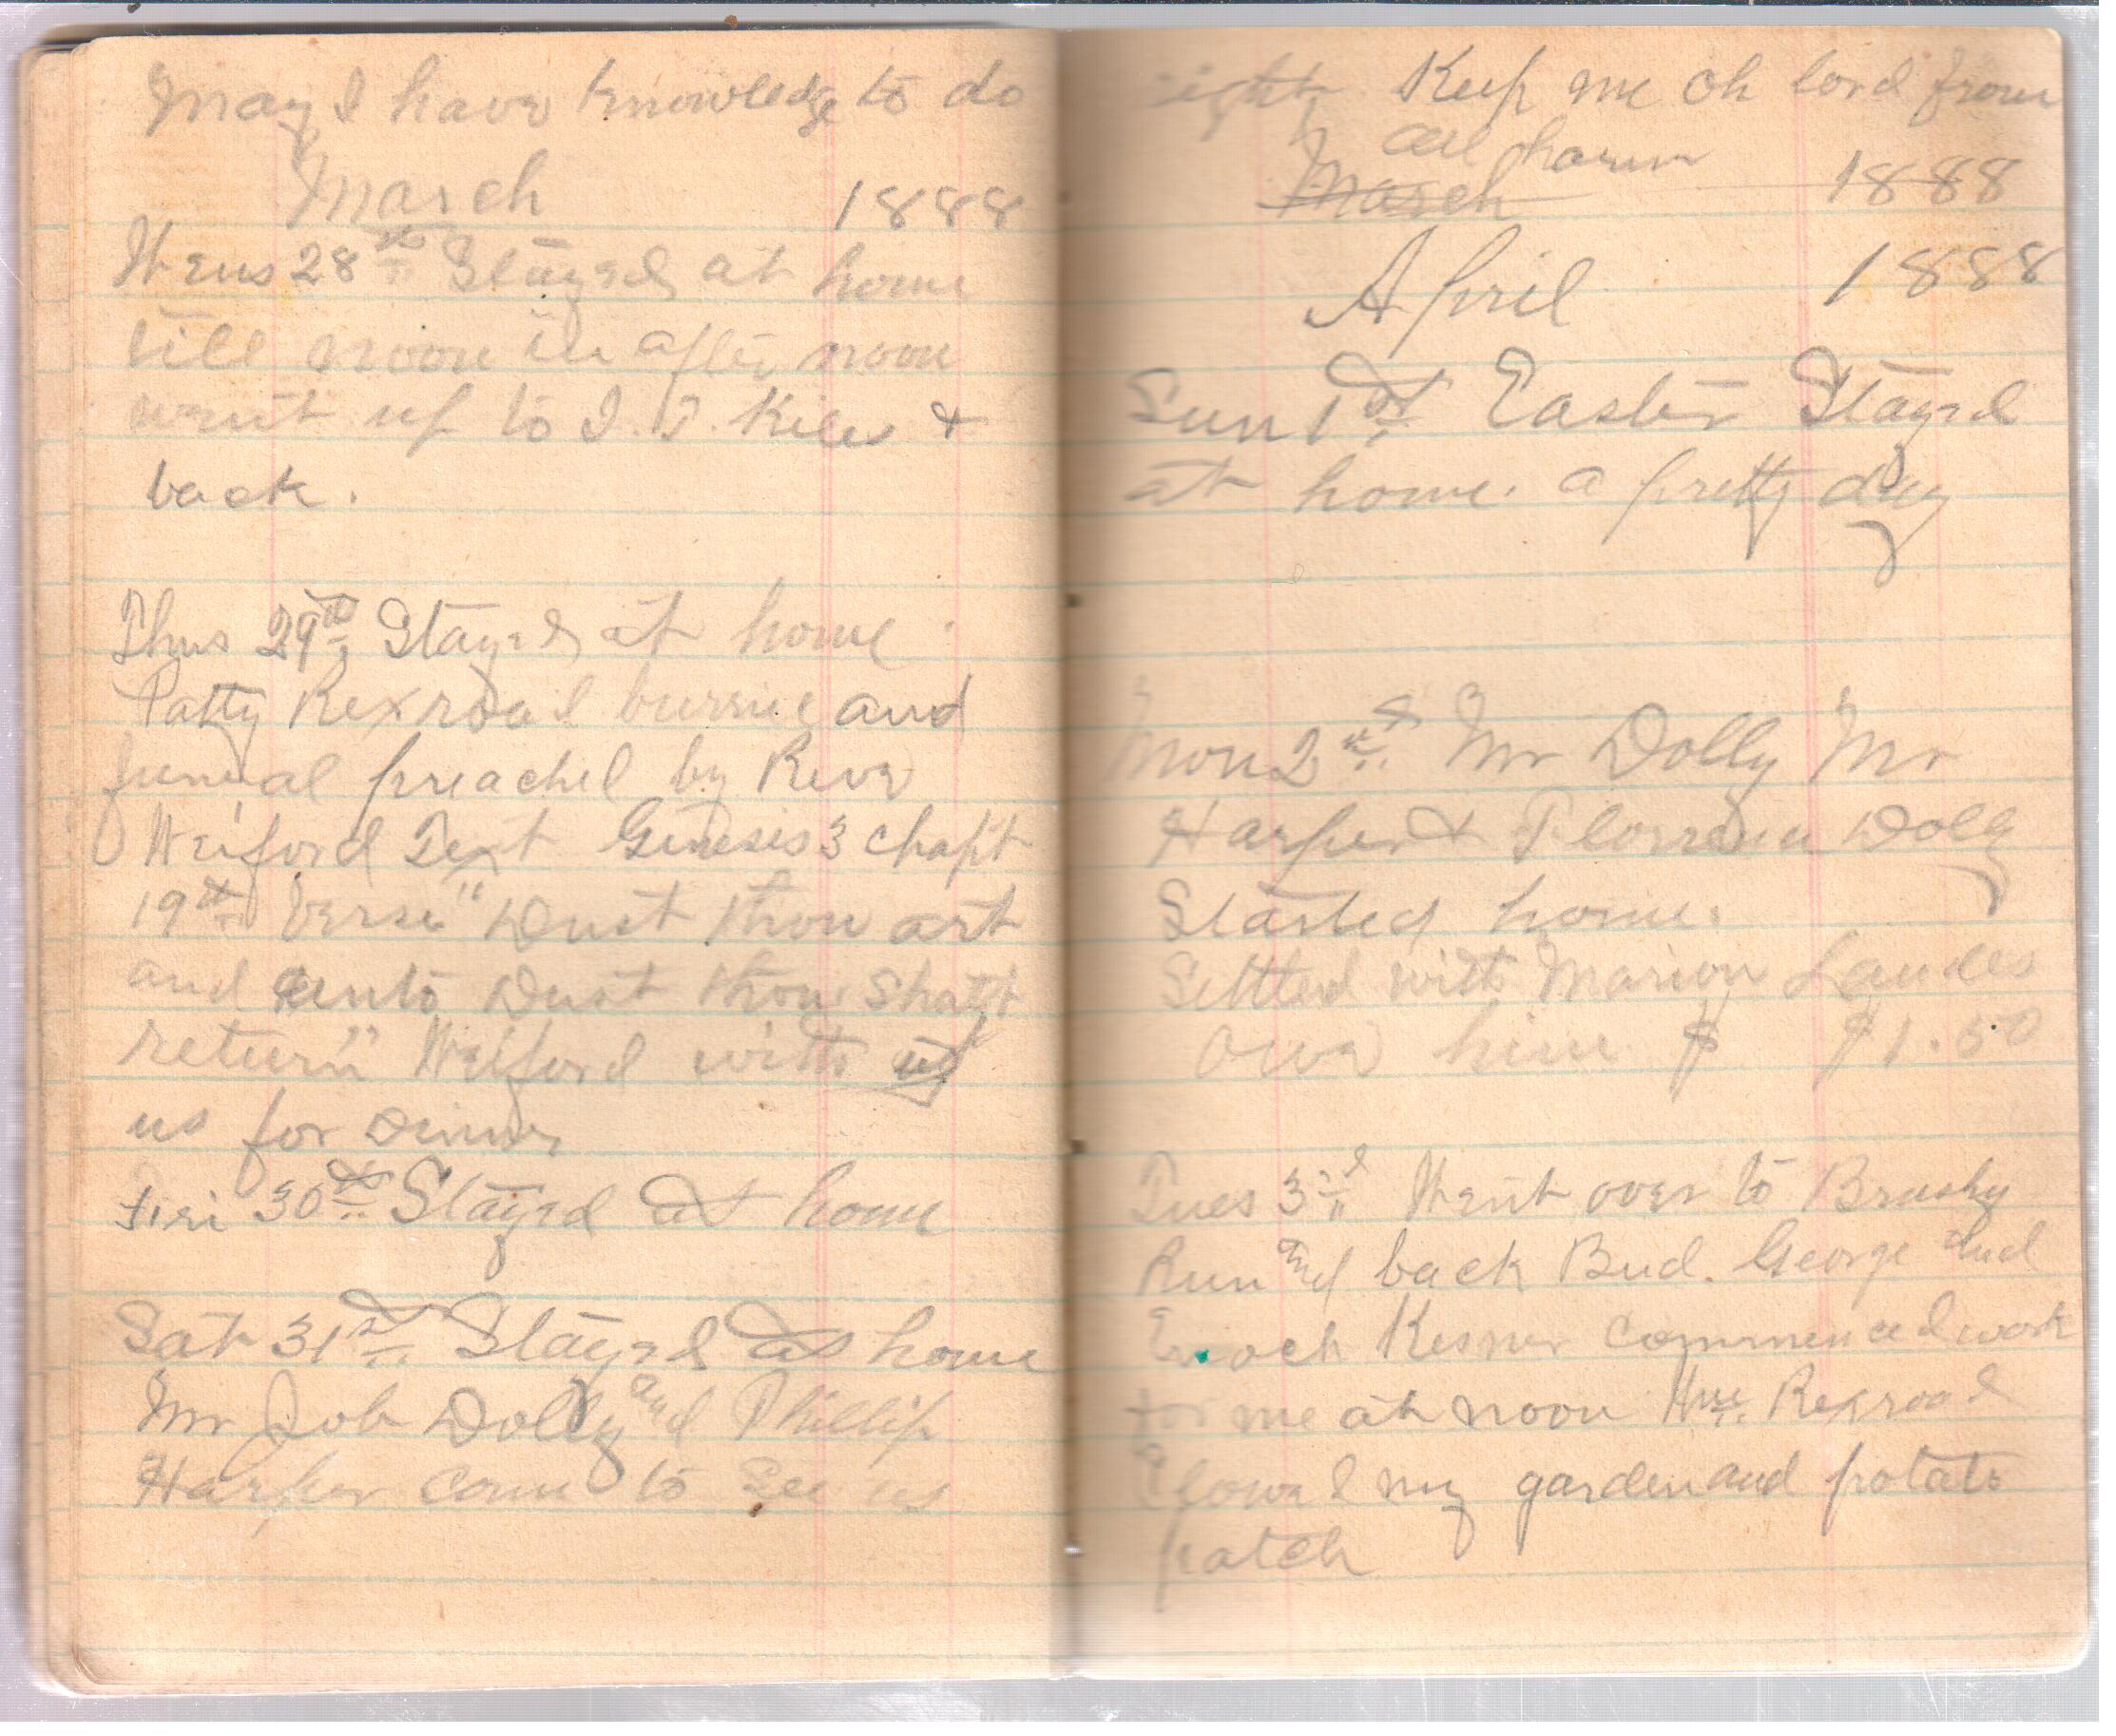 May I have knowledge to do
March 1888
Wens 28th Stayed at home
till noon in after noon
went up to I. T. Kiles &
back.
Thus 29th Stayed at home
Patty Rexroad burried and
funeral preached by Reve
Weiford Text Genesis 3 chapt
19th verse "Dust thou art
and unto Dust thou shalt
return" Weiford with us
us for Dinner
Fri 30th Stayed at home
Sat 31st Stayed at home
Mr Job Dolly and Phillip
Harper come to See us
right Keep me oh lord from
all harm
March 1888
April 1888
Sun 1st Easter Stayed
at home. a pretty day
Mon 2nd Mr Dolly Mr
Harper & Dolly
Started home.
Settled with Marion Landes
owe him $ $1.50
Tues 3rd Went over to Brushy
Run and back Bud. George and
Enoch Kesner commenced work
for me at noon Wm. Rexroad
Plowed my garden and potato
patch